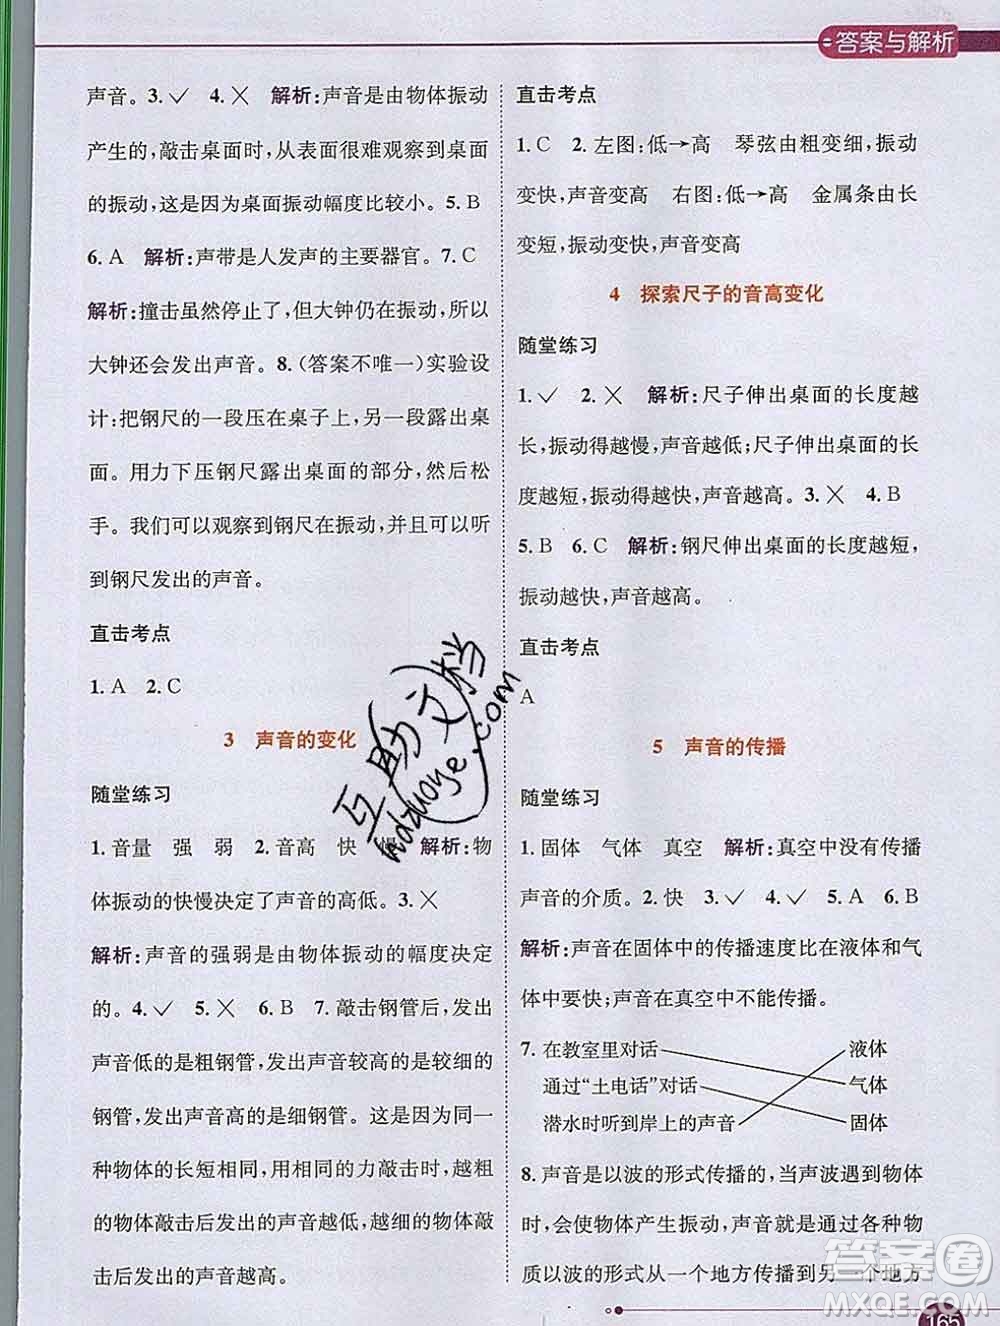 答案与解析
声音。3.✓ 4.✕ 解析:声音是由物体振动
产生的,敲击桌面时,从表面很难观察到桌面
的振动,这是因为桌面振动幅度比较小。5.B
6.A 解析:声带是人发声的主要器官。7.C
解析:撞击虽然停止了,但大钟仍在振动,所以
大钟还会发出声音。8.(答案不唯一)实验设
计:把钢尺的一段压在桌子上,另一段露出桌
面。用力下压钢尺露出桌面的部分,然后松
手。我们可以观察到钢尺在振动,并且可以听
到钢尺发出的声音。
直击考点
1.A 2.C
3 声音的变化
随堂练习
1.音量 强 弱 2.音高 快 解析:物
体振动的快慢决定了声音的高低。3.✕
解析:声音的强弱是由物体振动的幅度决定
的。4.✓ 5.✕ 6.B 7.敲击钢管后,发出
声音低的是粗钢管,发出声音较高的是较细的
钢管,发出声音高的是细钢管。这是因为同一
种物体的长短相同,用相同的力敲击时,越粗
的物体敲击后发出的声音越低,越细的物体敲
击后发出的声音越高。
直击考点
1.C 2.左图:低→高 琴弦由粗变细,振动
变快,声音变高 右图:低→高 金属条由长
变短,振动变快,声音变高
4 探索尺子的音高变化
随堂练习
1.✓ 2.✕ 解析:尺子伸出桌面的长度越
长,振动得越慢,声音越低;尺子伸出桌面的
长度越短,振动得越快,声音越高。3.✕ 4.B
5.B 6.C 解析:钢尺伸出桌面的长度越短,
振动越快,声音越高。
直击考点
A
5 声音的传播
随堂练习
1.固体 气体 真空 解析:真空中没有传播
声音的介质。2.快 3.✓ 4.✓ 5.A 6.B
解析:声音在固体中的传播速度比在液体和气
体中要快;声音在真空中不能传播。
7.在教室里对话 液体
通过“土电话”对话 气体
潜水时听到岸上的声音 固体
8.声音是以波的形式传播的,当声波遇到物体
时,会使物体产生振动,声音就是通过各种物
质以波的形式从一个地方传播到另一个地方
165
互助文档
huzuoye.com
答案圈
MXQE.COM